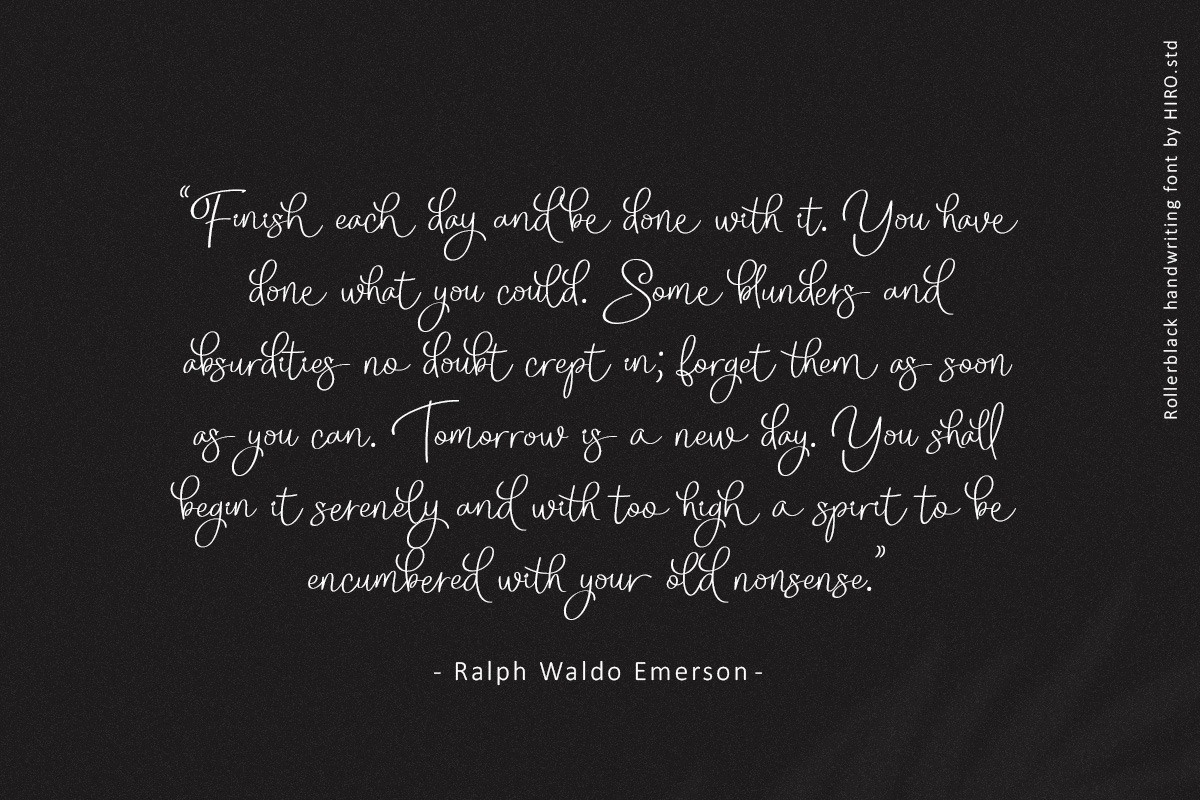 “Finish each day and be done with it. You have
done what you could. Some blunders and
absurdities no doubt crept in; forget them as soon
as you can. Tomorrow is a new day. You shall
begin it serenely and with too high a spirit to be
encumbered with your old nonsense.”
- Ralph Waldo Emerson -
Rollerblack handwriting font by HIRO.std